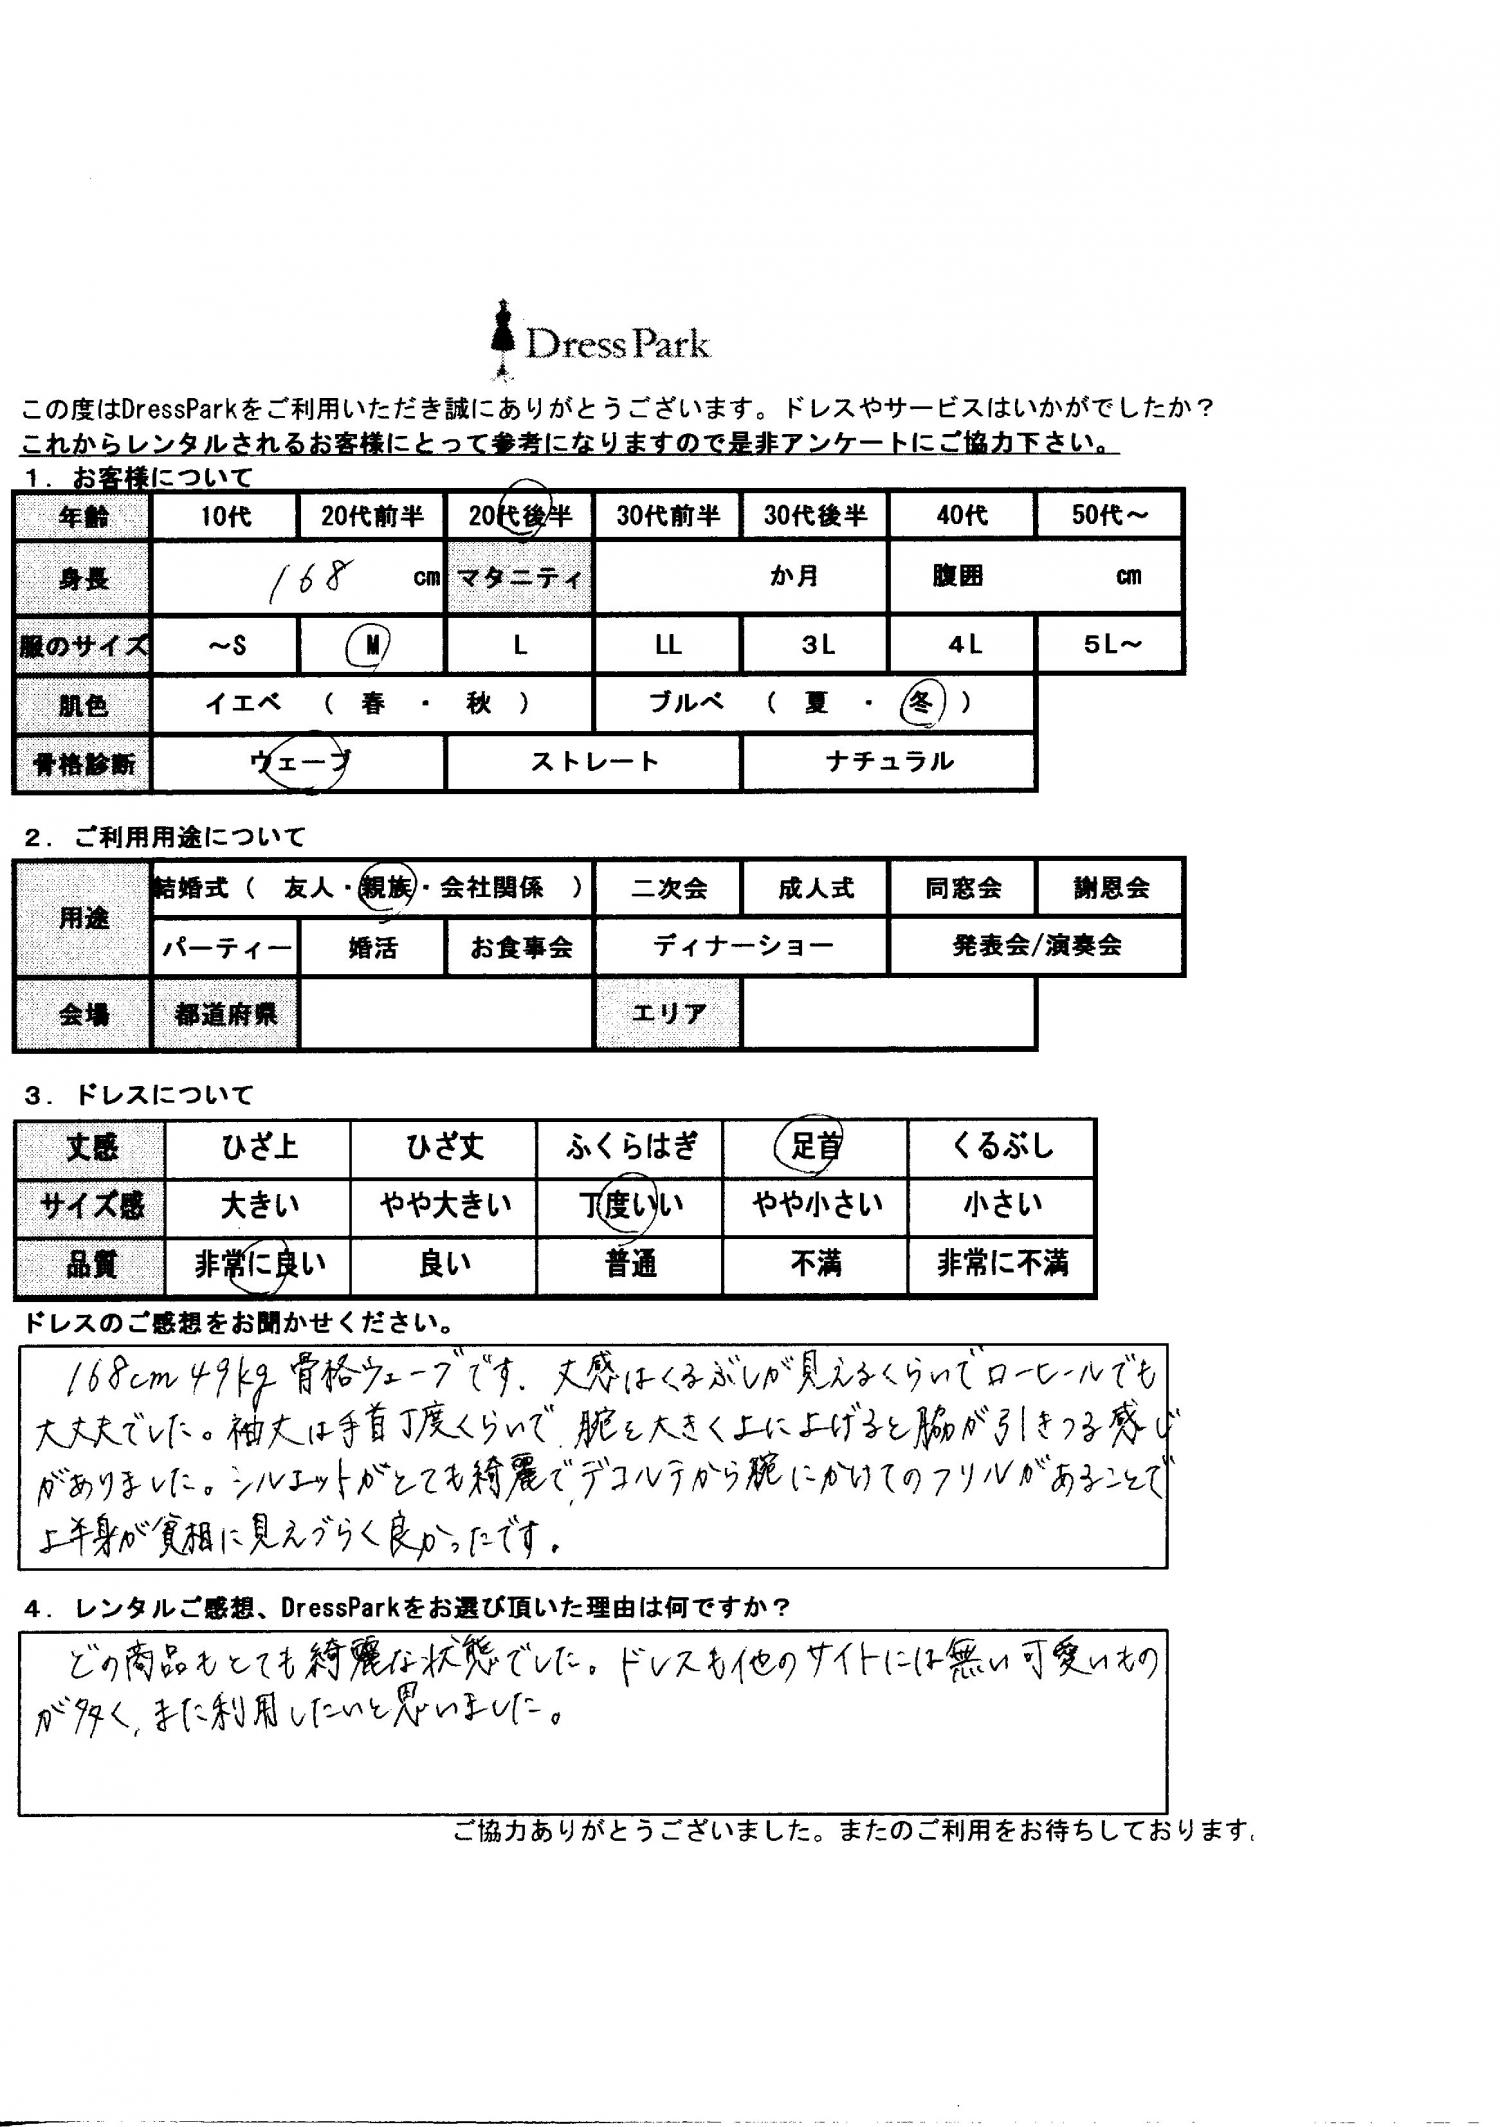 DressPark
この度はDressParkをご利用いただき誠にありがとうございます。ドレスやサービスはいかがでしたか？
これからレンタルされるお客様にとって参考になりますので是非アンケートにご協力下さい。
１．お客様について
年齢 10代 20代前半 20代後半 30代前半 30代後半 40代 50代～
身長 168 cm マタニティ か月 腹囲 cm
服のサイズ ～S M L LL 3L 4L 5L～
肌色 イエベ （ 春 ・ 秋 ） ブルベ （ 夏 ・ 冬 ）
骨格診断 ウェーブ ストレート ナチュラル
２．ご利用用途について
用途 結婚式（ 友人・親族・会社関係 ） 二次会 成人式 同窓会 謝恩会
パーティー 婚活 お食事会 ディナーショー 発表会/演奏会
会場 都道府県 エリア
３．ドレスについて
丈感 ひざ上 ひざ丈 ふくらはぎ 足首 くるぶし
サイズ感 大きい やや大きい 丁度いい やや小さい 小さい
品質 非常に良い 良い 普通 不満 非常に不満
ドレスのご感想をお聞かせください。
168cm 49kg 骨格ウェーブです。丈感はくるぶしが見えるくらいでローヒールでも
大丈夫でした。袖丈は手首丁度くらいで、腕を大きく上に上げると脇が引きつる感じ
がありました。シルエットがとても綺麗で、デコルテから腕にかけてのフリルがあることで
上半身が貧相に見えづらく良かったです。
４．レンタルご感想、DressParkをお選び頂いた理由は何ですか？
どの商品もとても綺麗な状態でした。ドレスも他のサイトには無い可愛いもの
が多く、また利用したいと思いました。
ご協力ありがとうございました。またのご利用をお待ちしております。